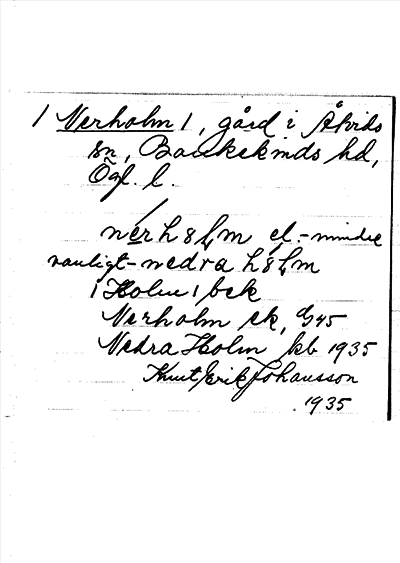 / Nerholm /, gård i Åtvids
sn, Bankekinds hd,
Ögl. l.
nerhålm el. - mindre
vanligt - nedra hålm
i Holm / bek
Nerholm ek, G45
Nedra Holm kb 1935
Knut Erik Johansson
1935